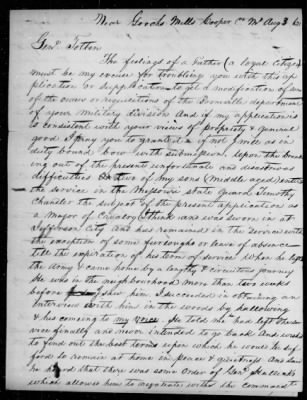 Near Gooch's Mills Cooper Co Mo Aug 3 62
Genl Totten
The feelings of a Father (a loyal citizen)
must be my excuse for troubling you with this ap-
plication or supplication to get a modification of some
of the order or requisitions of the Boonville department
of your Military division And if my application is
is consistent with your views of propriety & general
good I pray you to grant it & if not I will as in
duty bound bow with submission. Upon the break-
ing out of the present unfortunate and disastrous
difficulties two of my sons (middle aged) entered
the service in the Missouri State Guard Timothy
Chandler the subject of the present application as
a Major of Cavalry I think and was sworn in at
Jefferson City and has remained in the service with
the exception of some furloughs or leave of absence
till the expiration of his term of service When he left
the Army & came home by a lengthy & circuitous journey
He was in the neighbourhood more than two weeks
before I saw him. I succeeded in obtaining an
interview with him in the woods by hallowing
& his coming to my voice He told me he had left the ser-
vice finally and never intended to go back and wished
to find out the best terms upon which he would be suf-
fered to remain at home in peace & quietness And said
he that there was some order of Genl Hallecks
which allowes him to negotiate with the commandt